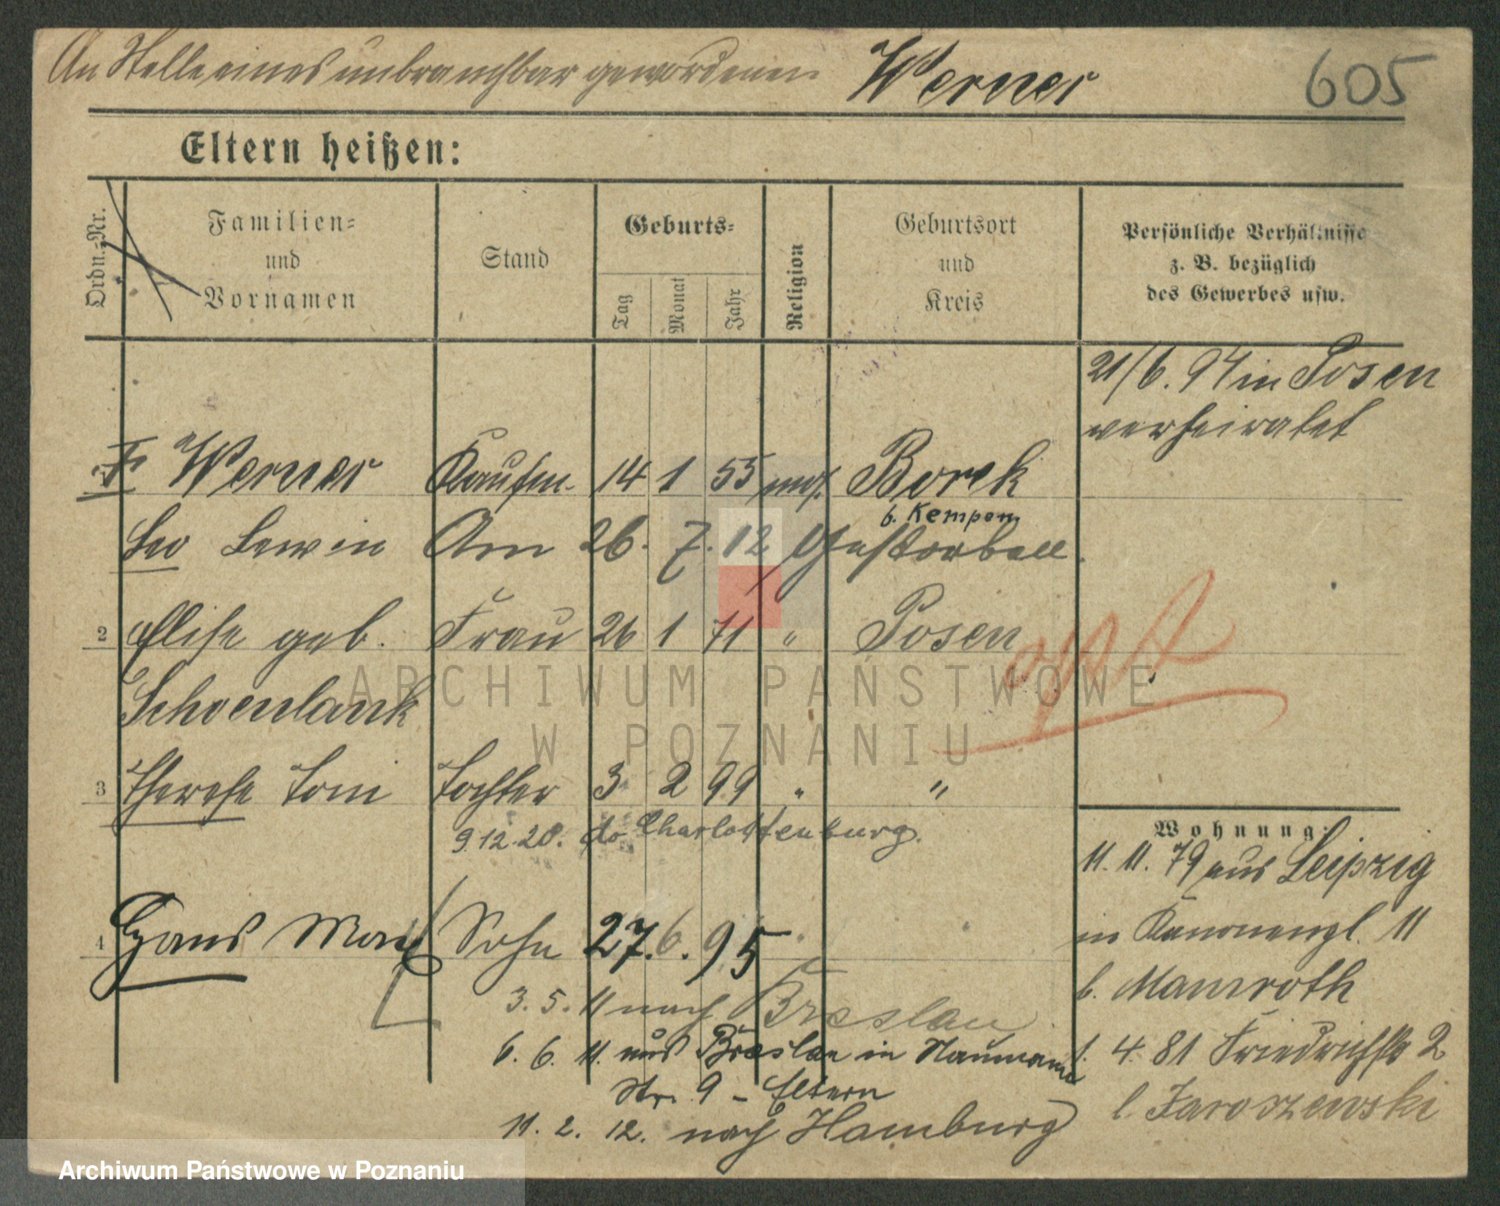 An Stelle eines unbrauchbar gewordenen Werner 605
Eltern heißen:
Ordn.-Nr.
Familien-
und
Vornamen
Stand
Geburts-
Tag
Monat
Jahr
Religion
Geburtsort
und
Kreis
Persönliche Verhältnisse
z. B. bezüglich
des Gewerbes usw.
21/6. 94 in Posen
verheiratet
Werner Kaufm. 14 1 55 mos. Borek
b. Kempen
Leo Lewin Am 26. 7. 12 Gestorben
2 Elise geb. Frau 26 1 71 " Posen
Schoenlank
3 Therese Toni Tochter 3 2 99 " "
9.12.20. Charlottenburg.
4 Hans Max Sohn 27. 6. 95
3. 5. 11 nach Breslau
6. 6. 11. aus Breslau in Naumann
Str. 9 – Eltern
11. 2. 12. nach Hamburg
Wohnung:
11. 11. 79 aus Leipzig
in Kanonenpl. 11
b. Mamroth
1. 4. 81 Friedrichstr 2
b Jaroszewski
ARCHIWUM PAŃSTWOWE
W POZNANIU
Archiwum Państwowe w Poznaniu